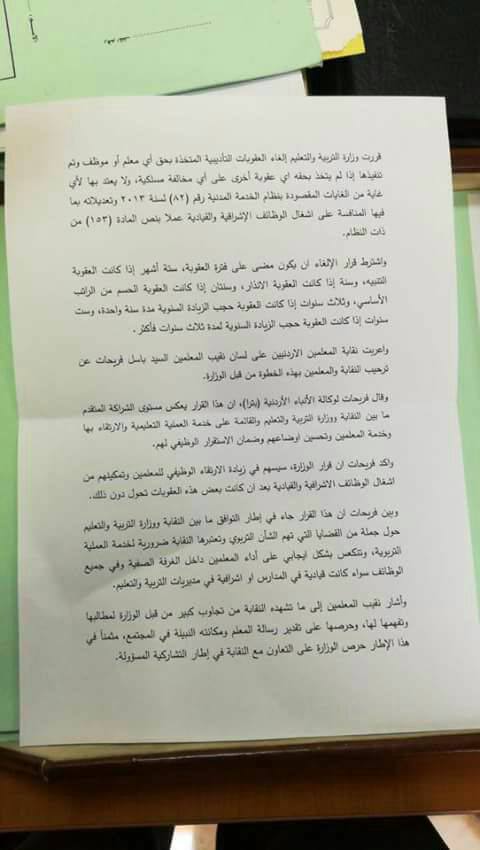 رقم الملف
قررت وزارة التربية والتعليم إلغاء العقوبات التأديبية المتخذة بحق أي معلم أو موظف وتم
تنفيذها إذا لم يتخذ بحقه اي عقوبة أخرى على أي مخالفة مسلكية، ولا يعتد بها لأي
غاية من الغايات المقصودة بنظام الخدمة المدنية رقم (٨٢) لسنة ٢٠١٣ وتعديلاته بما
فيها المنافسة على اشغال الوظائف الإشرافية والقيادية عملا بنص المادة (١٥٣) من
ذات النظام.
واشترط قرار الإلغاء ان يكون مضى على فترة العقوبة، ستة أشهر إذا كانت العقوبة
التنبيه، وسنة إذا كانت العقوبة الانذار، وسنتان إذا كانت العقوبة الحسم من الراتب
الأساسي، وثلاث سنوات إذا كانت العقوبة حجب الزيادة السنوية مدة سنة واحدة، وست
سنوات إذا كانت العقوبة حجب الزيادة السنوية لمدة ثلاث سنوات فأكثر.
واعربت نقابة المعلمين الاردنيين على لسان نقيب المعلمين السيد باسل فريحات عن
ترحيب النقابة والمعلمين بهذه الخطوة من قبل الوزارة.
وقال فريحات لوكالة الأنباء الأردنية (بترا)، ان هذا القرار يعكس مستوى الشراكة المتقدم
ما بين النقابة ووزارة التربية والتعليم والقائمة على خدمة العملية التعليمية والارتقاء بها
وخدمة المعلمين وتحسين اوضاعهم وضمان الاستقرار الوظيفي لهم.
واكد فريحات ان قرار الوزارة، سيسهم في زيادة الارتقاء الوظيفي للمعلمين وتمكينهم من
اشغال الوظائف الاشرافية والقيادية بعد ان كانت بعض هذه العقوبات تحول دون ذلك.
وبين فريحات ان هذا القرار جاء في إطار التوافق ما بين النقابة ووزارة التربية والتعليم
حول جملة من القضايا التي تهم الشأن التربوي وتعتبرها النقابة ضرورية لخدمة العملية
التربوية، وتنعكس بشكل ايجابي على أداء المعلمين داخل الغرفة الصفية وفي جميع
الوظائف سواء كانت قيادية في المدارس او اشرافية في مديريات التربية والتعليم.
وأشار نقيب المعلمين إلى ما تشهده النقابة من تجاوب كبير من قبل الوزارة لمطالبها
وتفهمها لها، وحرصها على تقدير رسالة المعلم ومكانته النبيلة في المجتمع، مثمناً في
هذا الإطار حرص الوزارة على التعاون مع النقابة في إطار التشاركية المسؤولة.